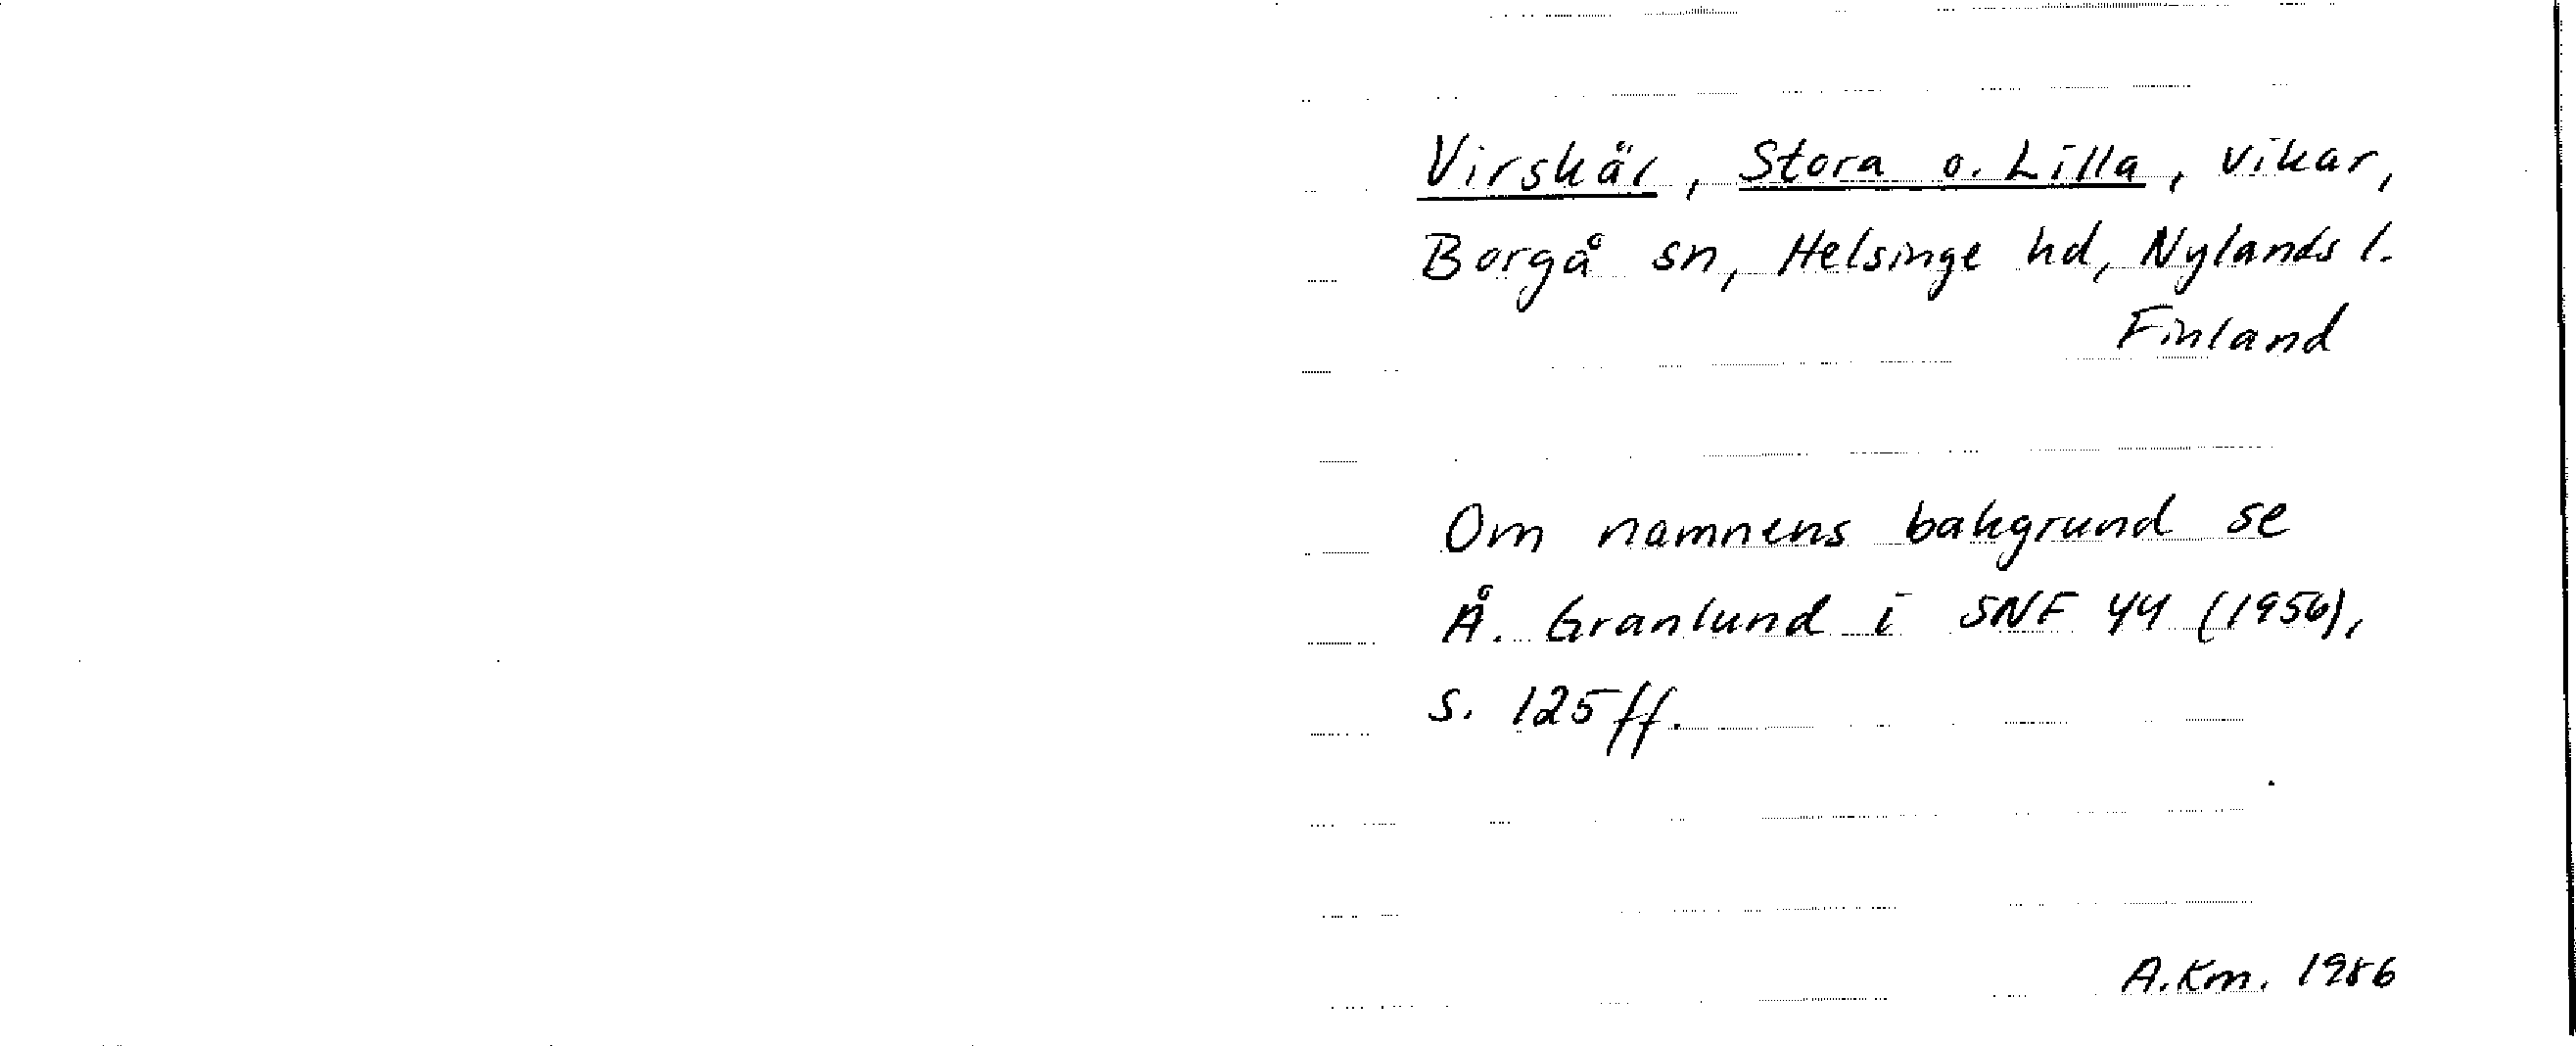 Virskär, Stora o. Lilla, vikar,
Borgå sn, Helsinge hd, Nylands l.
Finland
Om namnens bakgrund se
Å. Granlund i SNF 44 (1956),
s. 125 ff.
A.Km. 1986